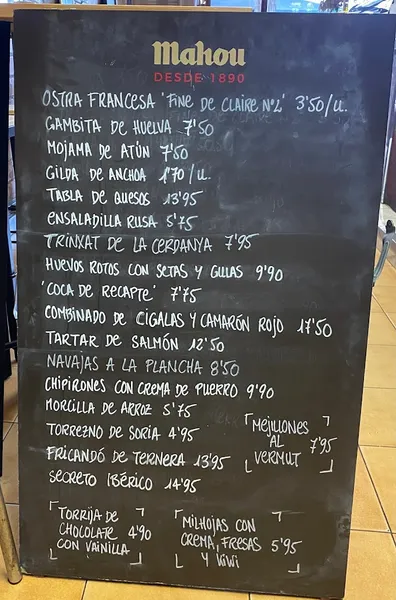 Mahou
DESDE 1890
OSTRA FRANCESA 'FINE DE CLAIRE Nº2' 3'50/u.
GAMBITA DE HUELVA 7'50
MOJAMA DE ATÚN 7'50
GILDA DE ANCHOA 1'70/u.
TABLA DE QUESOS 13'95
ENSALADILLA RUSA 5'75
TRINXAT DE LA CERDANYA 7'95
HUEVOS ROTOS CON SETAS Y GULAS 9'90
'COCA DE RECAPTE' 7'75
COMBINADO DE CIGALAS Y CAMARÓN ROJO 17'50
TARTAR DE SALMÓN 12'50
NAVAJAS A LA PLANCHA 8'50
CHIPIRONES CON CREMA DE PUERRO 9'90
MORCILLA DE ARROZ 5'75
TORREZNO DE SORIA 4'95
FRICANDÓ DE TERNERA 13'95
SECRETO IBÉRICO 14'95
MEJILLONES
AL 7'95
VERMUT
TORRIJA DE
CHOCOLATE 4'90
CON VAINILLA
MILHOJAS CON
CREMA, FRESAS 5'95
Y KIWI